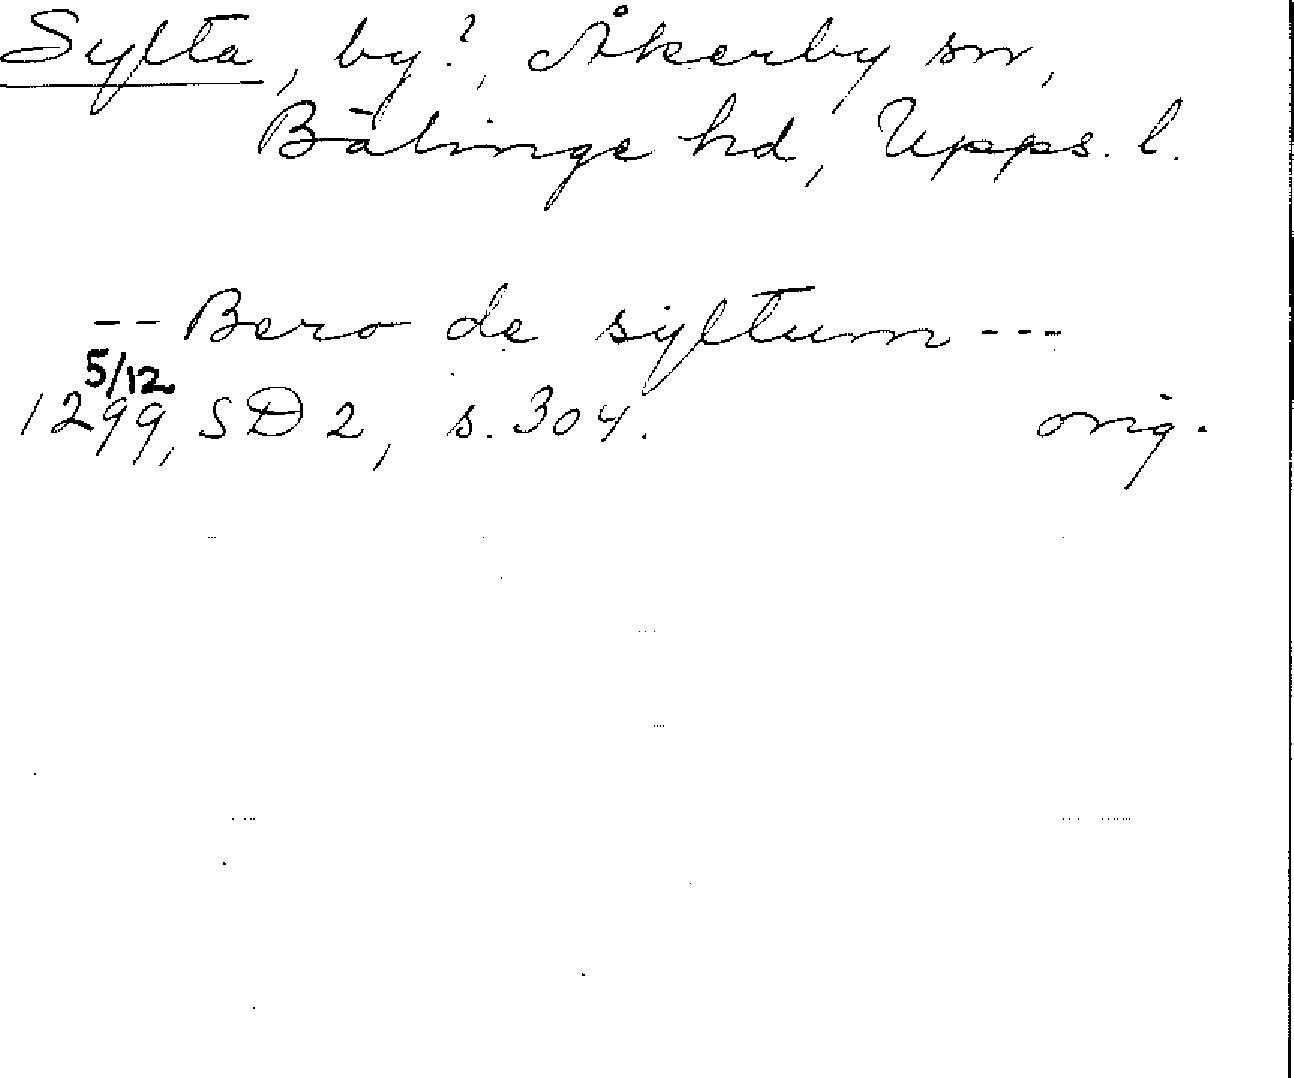 Sylta, by?, Åkerby sn,
Bälinge hd, Upps. l.
-- Bero de syltum ---
5/12
1299, SD 2, s. 304. orig.